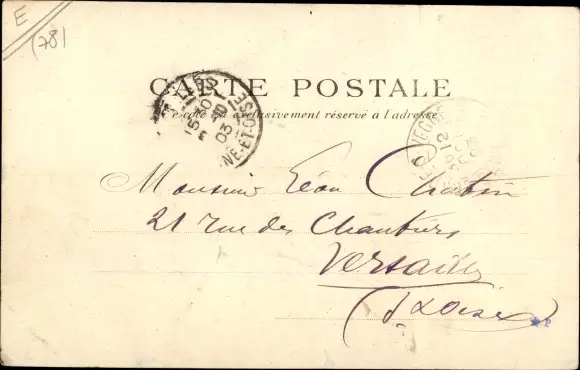 E
(78)
CARTE POSTALE
Ce côté est exclusivement réservé à l'adresse
15 30
03
NE-ET-OISE
12
Monsieur Léon Chatin
21 rue des Chantiers
Versailles
(S. & Oise)